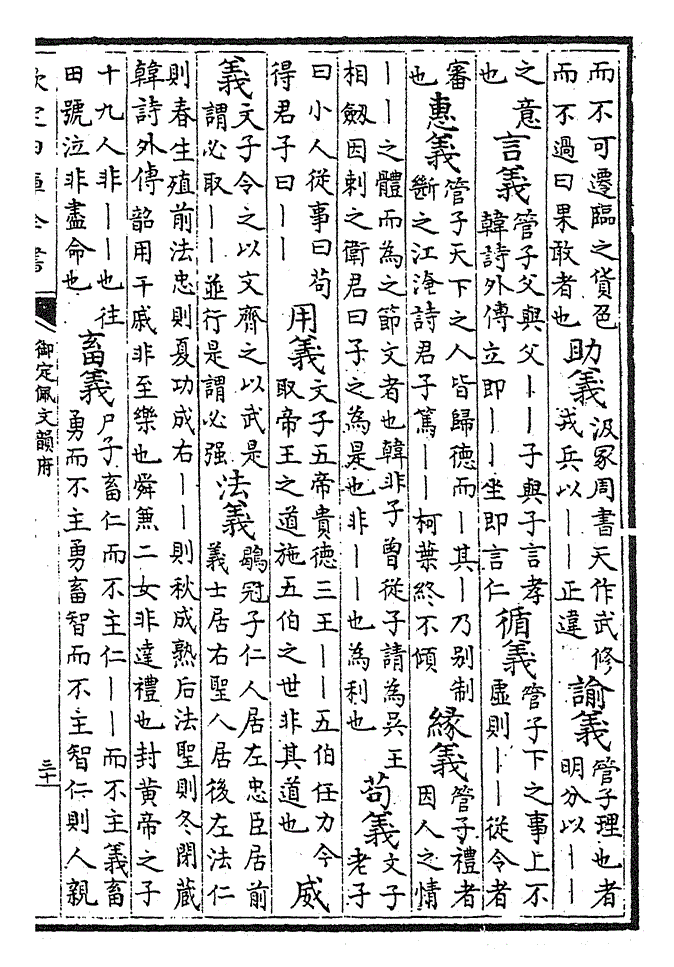 而不可遷臨之貨色
而不過曰果敢者也
助義
汲冢周書天作武修
戎兵以丨丨正違
諭義
管子理也者
明分以丨丨
之意
也
言義
管子父與父丨丨子與子言孝
韓詩外傳立即丨丨坐即言仁
循義
管子下之事上不
虛則丨丨從令者
審
也
惠義
管子天下之人皆歸德而丨其丨乃别制
斷之江淹詩君子篤丨丨柯葉終不傾
縁義
管子禮者
因人之情
丨丨之體而為之節文者也韓非子曾從子請為吳王
相劔因刺之衛君曰子之為是也非丨丨也為利也
苟義
文子
老子
曰小人從事曰苟
得君子曰丨丨
用義
文子五帝貴德三王丨丨五伯任力今
取帝王之道施五伯之世非其道也
威
義
文子令之以文齊之以武是
謂必取丨丨並行是謂必强
法義
鶡冠子仁人居左忠臣居前
義士居右聖人居後左法仁
則春生殖前法忠則夏功成右丨丨則秋成熟后法聖則冬閉蔵
韓詩外傳韶用干戚非至樂也舜蒹二女非達禮也封黄帝之子
十九人非丨丨也往
田號泣非盡命也
畜義
尸子畜仁而不主仁丨丨而不主義畜
勇而不主勇畜智而不主智仁則人親
欽定四庫全書
御定佩文韻府
三十